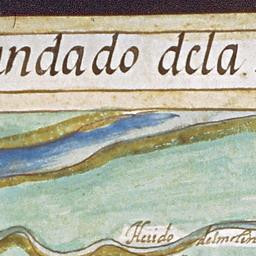 andado dela
Heiido delmolin